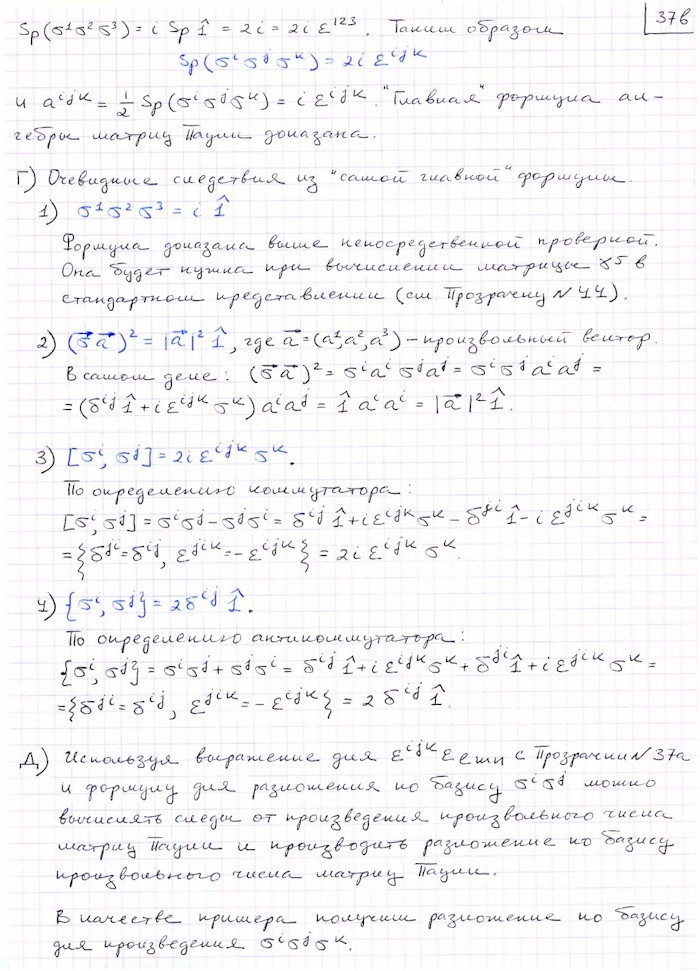 37в
Sp(σ¹σ²σ³) = i Sp 1̂ = 2i = 2i ε¹²³. Таким образом
Sp(σⁱσʲσᵏ) = 2i εⁱʲᵏ
и aⁱʲᵏ = 1/2 Sp(σⁱσʲσᵏ) = i εⁱʲᵏ. "Главная" формула ал-
гебры матриц Паули доказана.
Г) Очевидные следствия из "самой главной" формулы.
1) σ¹σ²σ³ = i 1̂
Формула доказана выше непосредственной проверкой.
Она будет нужна при вычислении матрицы γ⁵ в
стандартном представлении (см. Прозрачку N 44).
2) (σ⃗a⃗)² = |a⃗|² 1̂, где a⃗ = (a¹, a², a³) – произвольный вектор.
В самом деле: (σ⃗a⃗)² = σⁱaⁱ σʲaʲ = σⁱσʲ aⁱaʲ =
= (δⁱʲ 1̂ + i εⁱʲᵏ σᵏ) aⁱaʲ = 1̂ aⁱaⁱ = |a⃗|² 1̂.
3) [σⁱ, σʲ] = 2i εⁱʲᵏ σᵏ.
По определению коммутатора:
[σⁱ, σʲ] = σⁱσʲ – σʲσⁱ = δⁱʲ 1̂ + i εⁱʲᵏ σᵏ – δʲⁱ 1̂ – i εʲⁱᵏ σᵏ =
= {δʲⁱ = δⁱʲ, εʲⁱᵏ = – εⁱʲᵏ} = 2i εⁱʲᵏ σᵏ.
4) {σⁱ, σʲ} = 2δⁱʲ 1̂.
По определению антикоммутатора:
{σⁱ, σʲ} = σⁱσʲ + σʲσⁱ = δⁱʲ 1̂ + i εⁱʲᵏ σᵏ + δʲⁱ 1̂ + i εʲⁱᵏ σᵏ =
= {δʲⁱ = δⁱʲ, εʲⁱᵏ = – εⁱʲᵏ} = 2 δⁱʲ 1̂.
Д) Используя выражение для εⁱʲᵏ ε_ℓmn с Прозрачки N 37а
и формулу для разложения по базису σⁱσʲ можно
вычислять следы от произведения произвольного числа
матриц Паули и производить разложение по базису
произвольного числа матриц Паули.
В качестве примера получим разложение по базису
для произведения σⁱσʲσᵏ.